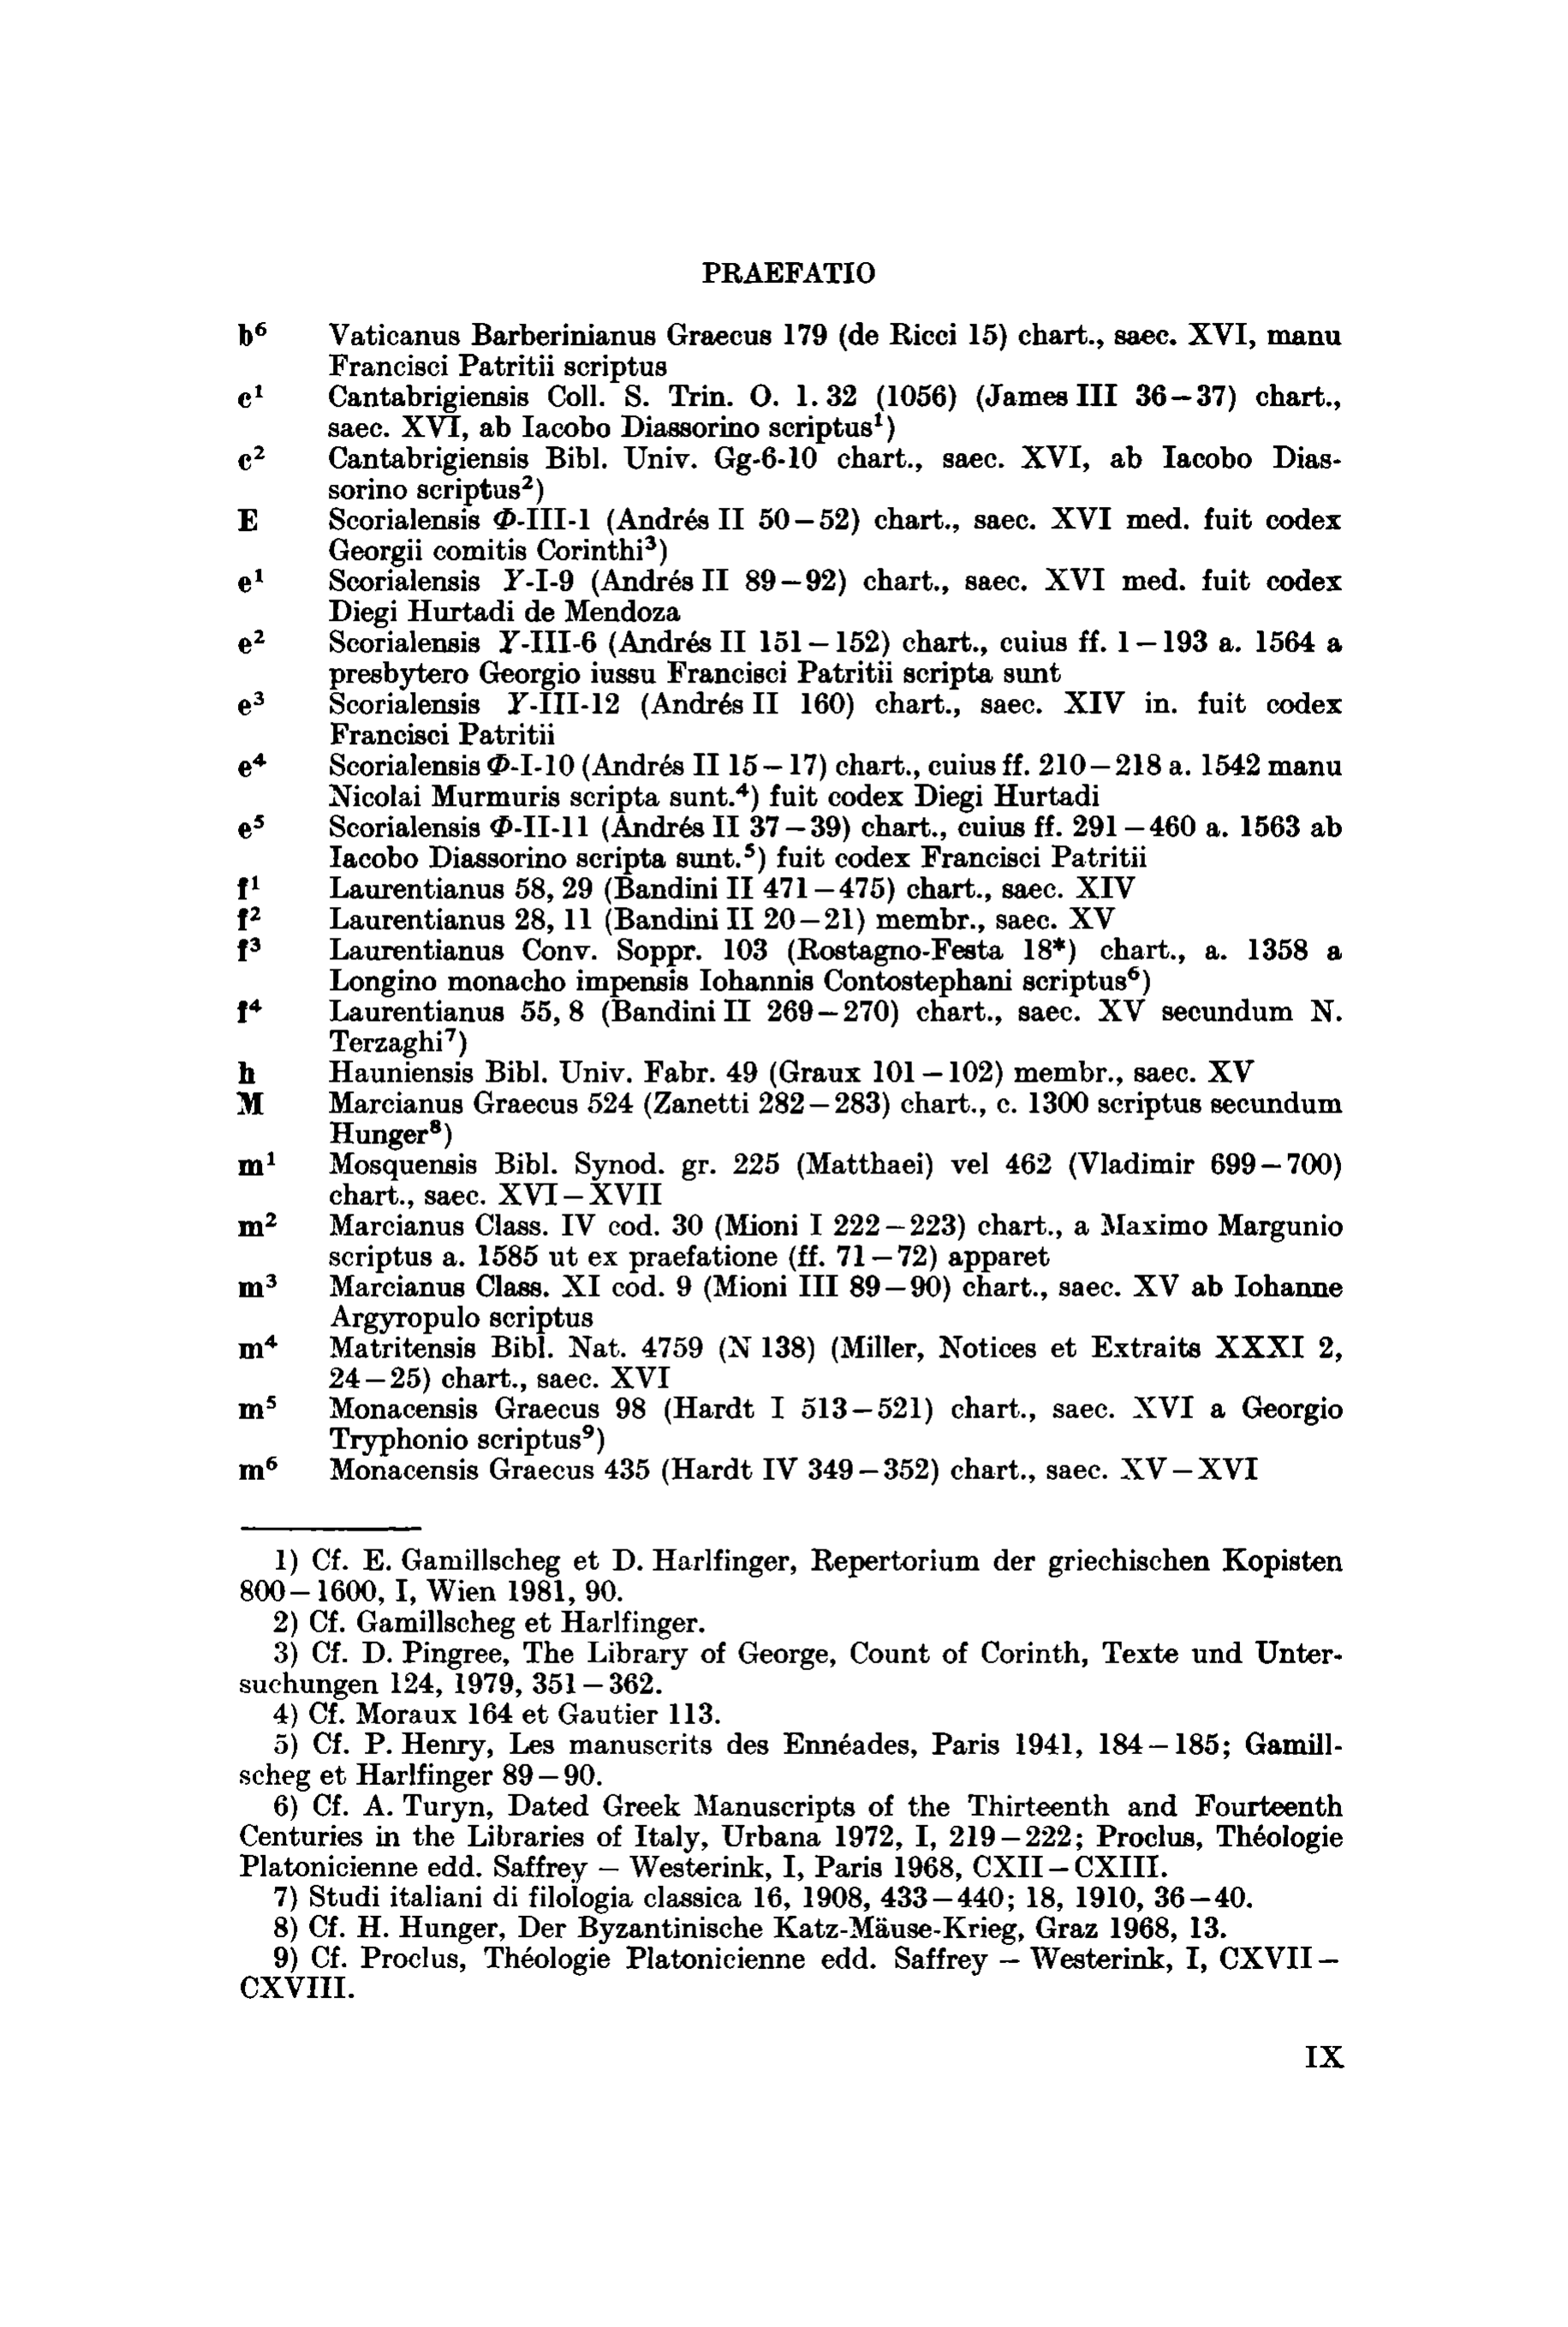 PRAEFATIO
b⁶ Vaticanus Barberinianus Graecus 179 (de Ricci 15) chart., saec. XVI, manu
Francisci Patritii scriptus
c¹ Cantabrigiensis Coll. S. Trin. O. 1. 32 (1056) (James III 36–37) chart.,
saec. XVI, ab Iacobo Diassorino scriptus¹)
c² Cantabrigiensis Bibl. Univ. Gg-6-10 chart., saec. XVI, ab Iacobo Dias-
sorino scriptus²)
E Scorialensis Φ-III-1 (Andrés II 50–52) chart., saec. XVI med. fuit codex
Georgii comitis Corinthi³)
e¹ Scorialensis Υ-I-9 (Andrés II 89–92) chart., saec. XVI med. fuit codex
Diegi Hurtadi de Mendoza
e² Scorialensis Υ-III-6 (Andrés II 151–152) chart., cuius ff. 1–193 a. 1564 a
presbytero Georgio iussu Francisci Patritii scripta sunt
e³ Scorialensis Υ-III-12 (Andrés II 160) chart., saec. XIV in. fuit codex
Francisci Patritii
e⁴ Scorialensis Φ-I-10 (Andrés II 15–17) chart., cuius ff. 210–218 a. 1542 manu
Nicolai Murmuris scripta sunt.⁴) fuit codex Diegi Hurtadi
e⁵ Scorialensis Φ-II-11 (Andrés II 37–39) chart., cuius ff. 291–460 a. 1563 ab
Iacobo Diassorino scripta sunt.⁵) fuit codex Francisci Patritii
f¹ Laurentianus 58, 29 (Bandini II 471–475) chart., saec. XIV
f² Laurentianus 28, 11 (Bandini II 20–21) membr., saec. XV
f³ Laurentianus Conv. Soppr. 103 (Rostagno-Festa 18*) chart., a. 1358 a
Longino monacho impensis Iohannis Contostephani scriptus⁶)
f⁴ Laurentianus 55, 8 (Bandini II 269–270) chart., saec. XV secundum N.
Terzaghi⁷)
h Hauniensis Bibl. Univ. Fabr. 49 (Graux 101–102) membr., saec. XV
M Marcianus Graecus 524 (Zanetti 282–283) chart., c. 1300 scriptus secundum
Hunger⁸)
m¹ Mosquensis Bibl. Synod. gr. 225 (Matthaei) vel 462 (Vladimir 699–700)
chart., saec. XVI–XVII
m² Marcianus Class. IV cod. 30 (Mioni I 222–223) chart., a Maximo Margunio
scriptus a. 1585 ut ex praefatione (ff. 71–72) apparet
m³ Marcianus Class. XI cod. 9 (Mioni III 89–90) chart., saec. XV ab Iohanne
Argyropulo scriptus
m⁴ Matritensis Bibl. Nat. 4759 (N 138) (Miller, Notices et Extraits XXXI 2,
24–25) chart., saec. XVI
m⁵ Monacensis Graecus 98 (Hardt I 513–521) chart., saec. XVI a Georgio
Tryphonio scriptus⁹)
m⁶ Monacensis Graecus 435 (Hardt IV 349–352) chart., saec. XV–XVI
1) Cf. E. Gamillscheg et D. Harlfinger, Repertorium der griechischen Kopisten
800–1600, I, Wien 1981, 90.
2) Cf. Gamillscheg et Harlfinger.
3) Cf. D. Pingree, The Library of George, Count of Corinth, Texte und Unter-
suchungen 124, 1979, 351–362.
4) Cf. Moraux 164 et Gautier 113.
5) Cf. P. Henry, Les manuscrits des Ennéades, Paris 1941, 184–185; Gamill-
scheg et Harlfinger 89–90.
6) Cf. A. Turyn, Dated Greek Manuscripts of the Thirteenth and Fourteenth
Centuries in the Libraries of Italy, Urbana 1972, I, 219–222; Proclus, Théologie
Platonicienne edd. Saffrey – Westerink, I, Paris 1968, CXII–CXIII.
7) Studi italiani di filologia classica 16, 1908, 433–440; 18, 1910, 36–40.
8) Cf. H. Hunger, Der Byzantinische Katz-Mäuse-Krieg, Graz 1968, 13.
9) Cf. Proclus, Théologie Platonicienne edd. Saffrey – Westerink, I, CXVII–
CXVIII.
IX